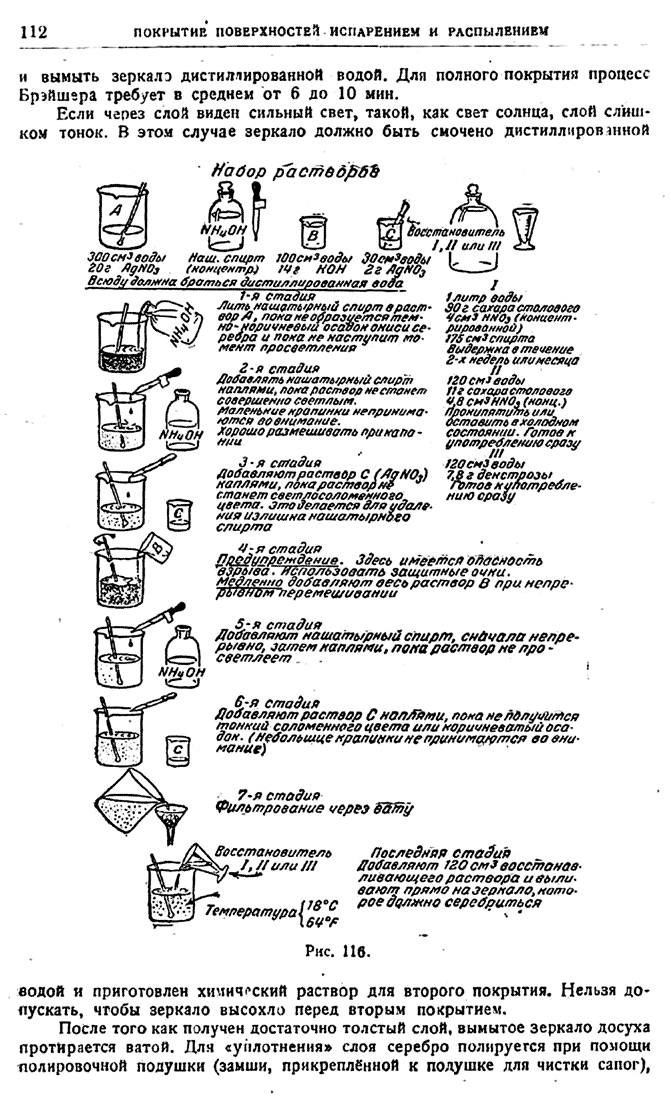 112
ПОКРЫТИЕ ПОВЕРХНОСТЕЙ ИСПАРЕНИЕМ И РАСПЫЛЕНИЕМ
и вымыть зеркало дистиллированной водой. Для полного покрытия процесс
Брэйшэра требует в среднем от 6 до 10 мин.
Если через слой виден сильный свет, такой, как свет солнца, слой слиш-
ком тонок. В этом случае зеркало должно быть смочено дистиллированной
Набор растворов
A
NH4OH
B
C
Восстановитель
I, II или III
300 см³ воды
20г AgNO3
Наш. спирт
(концентр)
100см³воды
14г KOH
30см³воды
2г AgNO3
Всюду должна браться дистиллированная вода
1-я стадия
Лить нашатырный спирт в раст-
вор А, пока не образуется тем-
но-коричневый осадок окиси се-
ребра и пока не наступит мо-
мент просветления
NH4OH
2-я стадия
Добавлять нашатырный спирт
каплями, пока раствор не станет
совершенно светлым.
Маленькие крапинки непринима-
ются во внимание.
Хорошо размешивать при капа-
нии
NH4OH
3-я стадия
Добавляют раствор С (AgNO3)
каплями, пока раствор не
станет светлосоломенного
цвета. Это делается для удале-
ния излишка нашатырного
спирта
C
I
1 литр воды
90г сахара столового
4см³ HNO3 (концент-
рированной)
175 см³ спирта
Выдержка в течение
2-х недель или месяца
II
120 см³ воды
11г сахара столового
4,8 см³ HNO3 (конц.)
Прокипятить или
оставить в холодном
состоянии. Готов к
употреблению сразу
III
120см³ воды
7,8 г декстрозы
Готов к употребле-
нию сразу
B
4-я стадия
Предупреждение. Здесь имеется опасность
взрыва. Использовать защитные очки.
Медленно добавляют весь раствор В при непре-
рывном перемешивании
5-я стадия
Добавляют нашатырный спирт, сначала непре-
рывно, затем каплями, пока раствор не про-
светлеет
NH4OH
6-я стадия
Добавляют раствор С каплями, пока не получится
тонкий соломенного цвета или коричневатый оса-
док. (Небольшие крапинки не принимаются во вни-
мание)
C
7-я стадия
Фильтрование через вату
Восстановитель
I, II или III
Температура {18°C
64°F
Последняя стадия
Добавляют 120 см³ восстанав-
ливающего раствора и выли-
вают прямо на зеркало, кото-
рое должно серебриться
Рис. 116.
водой и приготовлен химический раствор для второго покрытия. Нельзя до-
пускать, чтобы зеркало высохло перед вторым покрытием.
После того как получен достаточно толстый слой, вымытое зеркало досуха
протирается ватой. Для «уплотнения» слоя серебро полируется при помощи
полировочной подушки (замши, прикреплённой к подушке для чистки сапог),